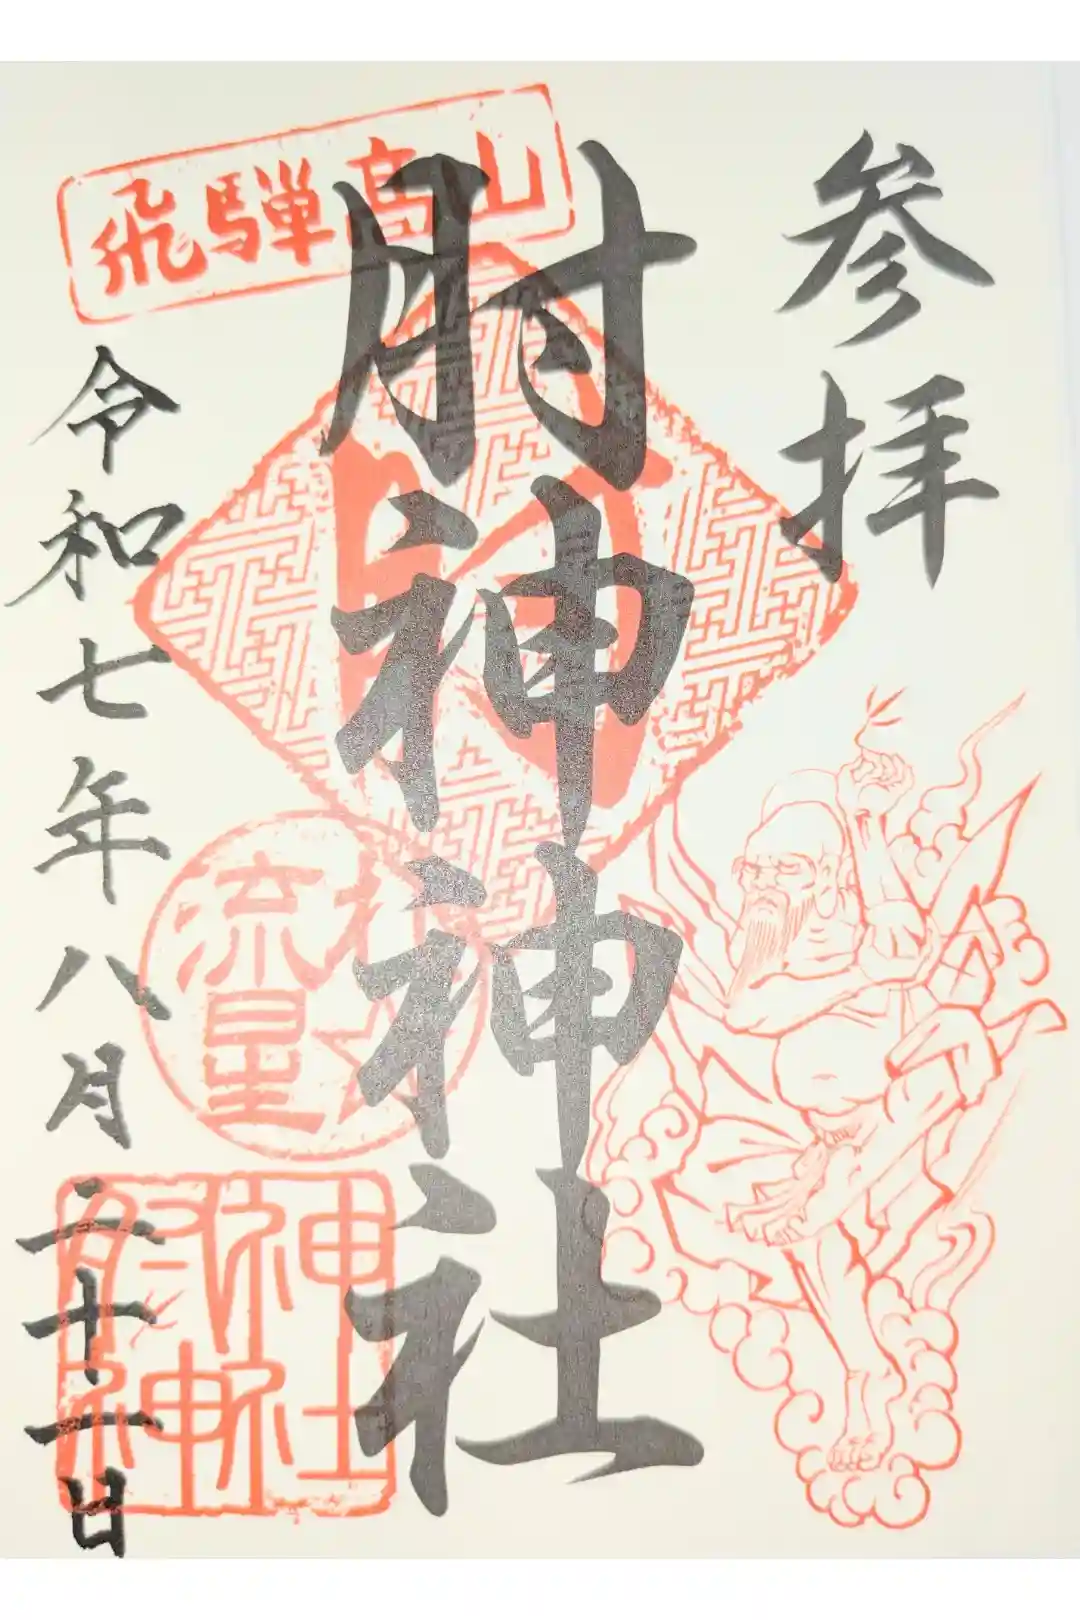 参拝
肘神神社
飛騨高山
令和七年八月二十二日
流星
肘神
神社